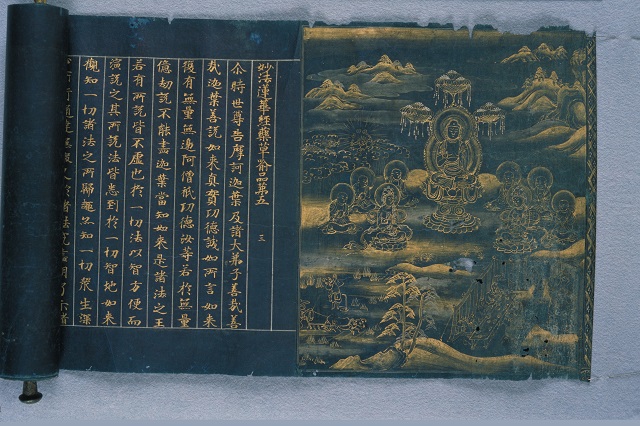 妙法蓮華經藥草喻品第五
三
尒時世尊告摩訶迦葉及諸大弟子善哉善
哉迦葉善說如來真實功德誠如所言如來
復有無量無邊阿僧祇功德汝等若於無量
億劫說不能盡迦葉當知如來是諸法之王
若有所說皆不虛也於一切法以智方便而
演說之其所說法皆悉到於一切智地如來
觀知一切諸法之所歸趣亦知一切衆生深
心所行通達無礙又於諸法究盡明了示諸